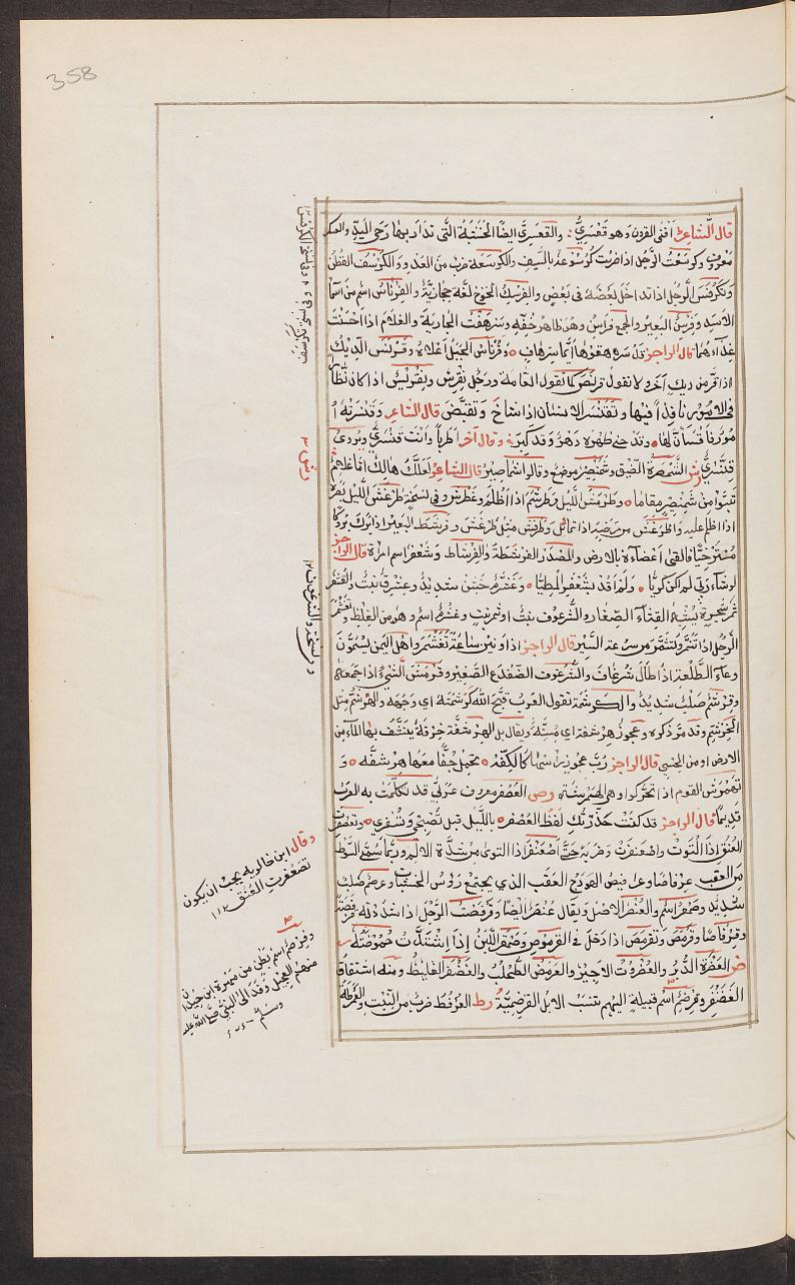 358
قال الشاعر أفنى القرون وهو قعسري والقعسري ايضا الخشبة التي تدار بها رحى اليد
معروف وكوسعت الرجل اذا ضربت كرسوعه بالسيف والكرسعة ضرب من العدو والكرسف القطن
وتكرفس الرجل اذا تداخل بعضه في بعض والفرسك الخوخ لغة حجازية والفرناس اسم من اسما
الاسد وفرسن البعير والجمع فراسن وهو ظاهر خفه وسرهفت الجارية والغلام اذا احسنت
غذاءهما قال الراجز قد سرهفوها ايما سرهاف وقرناس الجبل اعلاه وقرنس الديك
اذا فر من ديك آخر ولا تقول قرنص كما تقول العامة ورجل نقرس ونقريس اذا كان نظارا
في الامور نافذا فيها وتقنسر الانسان اذا شاخ وتقبض قال الشاعر وقنسرته ا
مور فاقسأن لها وقد حنى ظهره دهر وقد كبرا وقال آخر أطربا وأنت قنسري ويروى
قنسري رش الشمصرة الضيق وشمنصير موضع وقالوا شماصير قال الشاعر لعلك هالك اما غلام
تبوأ من شمنصير مقاما وطرمش الليل وطرشم اذا اظلم وغطرش وفي نسخة طرغش الليل بصره
اذا اظلم عليه واطرغش من مرضه اذا تماثل وطرفش مثل طرغش وفرشط البعير اذا برك بروكا
مسترخيا فالقى اعضاءه بالارض والمصدر الفرشطة والفرشاط وشعفر اسم امرأة قال الراجز
لو شاء ربي لم اكن كريا ولم اقد بشعفر المطيا وعشرم خشن شديد وعشرق نبت والقشعر
ثمر شجرة يشبه القثاء الصغار والشرعوف نبت او ثمر نبت وغشرم اسم وهو من الغلظ وتغشمر
الرجل اذا تنمر وتشمر من سرعة السير قال الراجز اذا ونين ساعة تغشمرا واهل اليمن يسمون
وعاء الطلعة اذا طال شرغافا والشرغوف الضفدع الصغير وقرمشت الشيء اذا جمعته
وقرشم صلب شديد والكرشمة تقول العرب قبح الله كرشمته اي وجهه والهرشم مثل
الخرشم وقد مر ذكره وعجوز هرشفة اي مسنة ويقال بل الهرشفة خرقة ينشف بها الماء من
الارض او من الحسي قال الراجز رب عجوز راسها كالكفه تحمل جفا معها هرشفه و
تهمرش القوم اذا تحركوا وهي الهمرشة رص العصفر معروف عربي قد تكلمت به العرب
قديما قال الراجز قد كنت حذرتك لقط العصفر بالليل قبل تصبحي وتسفري وتعصفرت
العنق اذا التوت واصعنفرت وضربه حتى اصعنفر اذا التوى من شدة الالم وربما سمي السوط
من العقب عرفاصا وعراصيف الهودج العقب الذي يجمع رؤس الخشبات وعرصم صلب
شديد وصعفر اسم والعنصر الاصل ويقال عنصر ايضا وقرفصت الرجل اذا شددته قرفصة
وقرفاصا وقرمص وتقرمص اذا دخل في القرموص وصمقر اللبن إذا اشتدت حموضته
رض العضرة الدبر والعضروت الاجير والعرمض الطحلب والغضفر الغليظ ومنه اشتقاق
الغضنفر وقرضم اسم قبيلة اليهم تنسب الابل القرضمية رط العرفط ضرب من النبت والغرطلة
وفي نسخة الكرفس
رش ٣
وفي نسخة والشرعوف ١٢
وقال ابن خالويه يجب ان يكون
تصعفرت العنق ١٢
وقرضم اسم بطن من مهرة ابن حيدان
منهم العجيل وفد الى النبي صلى الله عليه
وسلم